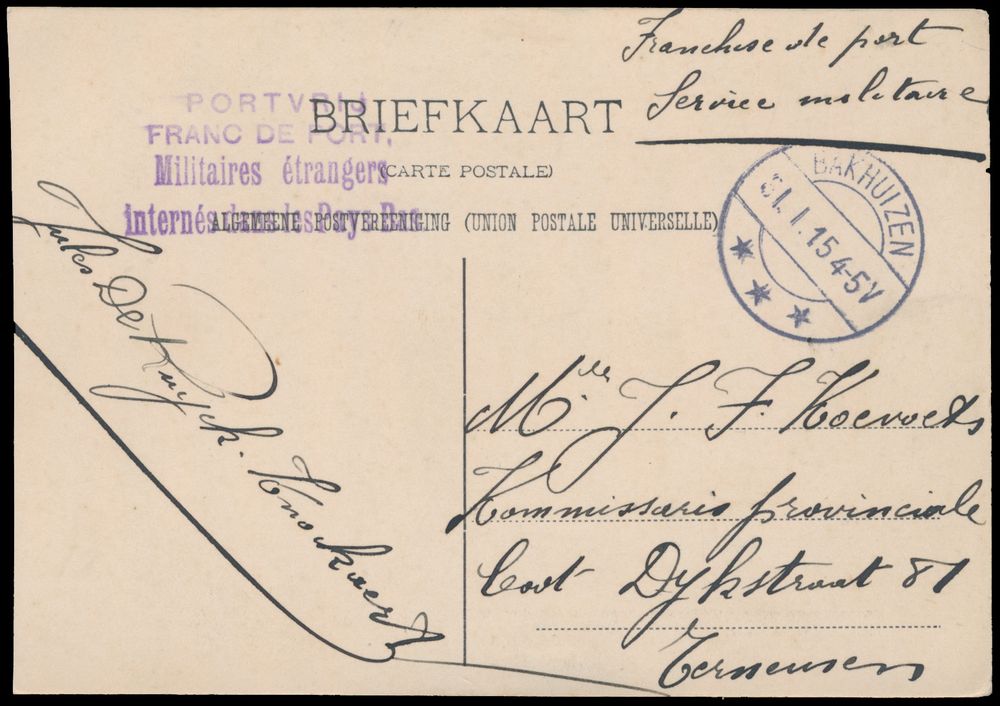 Franchise de port
Service militaire
PORTVRIJ
FRANC DE PORT.
Militaires étrangers
internés dans les Pays-Bas
BRIEFKAART
(CARTE POSTALE)
ALGEMEENE POSTVEREENIGING (UNION POSTALE UNIVERSELLE)
BAKHUIZEN
31.1.15 4-5V
Jules De Kuyck. Knockaert
J. F. Koevoets
Kommissaris provinciale
Dykstraat 81
Terneusen